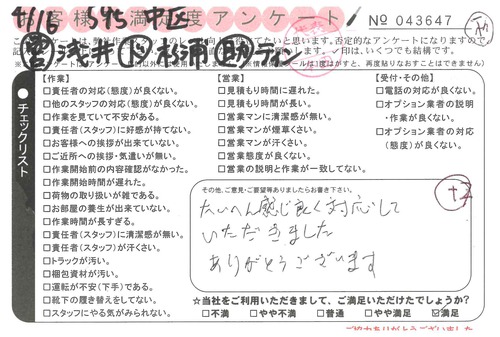 4/16 545 中区
お客様満足度アンケート
No 043647
営 浅井 ド 杉浦 助
【作業】
□責任者の対応(態度)が良くない。
□他のスタッフの対応(態度)が良くない。
□作業を見ていて不安がある。
□責任者(スタッフ)に好感が持てない。
□お客様への挨拶が出来ていない。
□ご近所への挨拶・気遣いが無い。
□作業開始前の内容確認がなかった。
□作業開始時間が遅れた。
□荷物の取り扱いが雑である。
□お部屋の養生が出来ていない。
□作業時間が長すぎる。
□責任者(スタッフ)に清潔感が無い。
□責任者(スタッフ)が汗くさい。
□トラックが汚い。
□梱包資材が汚い。
□運転が不安(下手)である。
□靴下の履き替えをしてない。
□スタッフにやる気がみられない。
【営業】
□見積もり時間に遅れた。
□見積もり時間が長い。
□営業マンに清潔感が無い。
□営業マンが煙草くさい。
□営業マンが汗くさい。
□営業態度が良くない。
□営業の説明と作業が一致してない。
【受付・その他】
□電話の対応が良くない。
□オプション業者の説明
・作業が良くない。
□オプション業者の対応
(態度)が良くない。
チェックリスト
その他、ご意見・ご要望等ありましたらお書き下さい。
たいへん感じ良く対応して
いただきました
ありがとうございます
☆当社をご利用いただきまして、ご満足いただけたでしょうか?
□不満 □やや不満 □普通 □やや満足 ☑満足
ご協力ありがとうございました